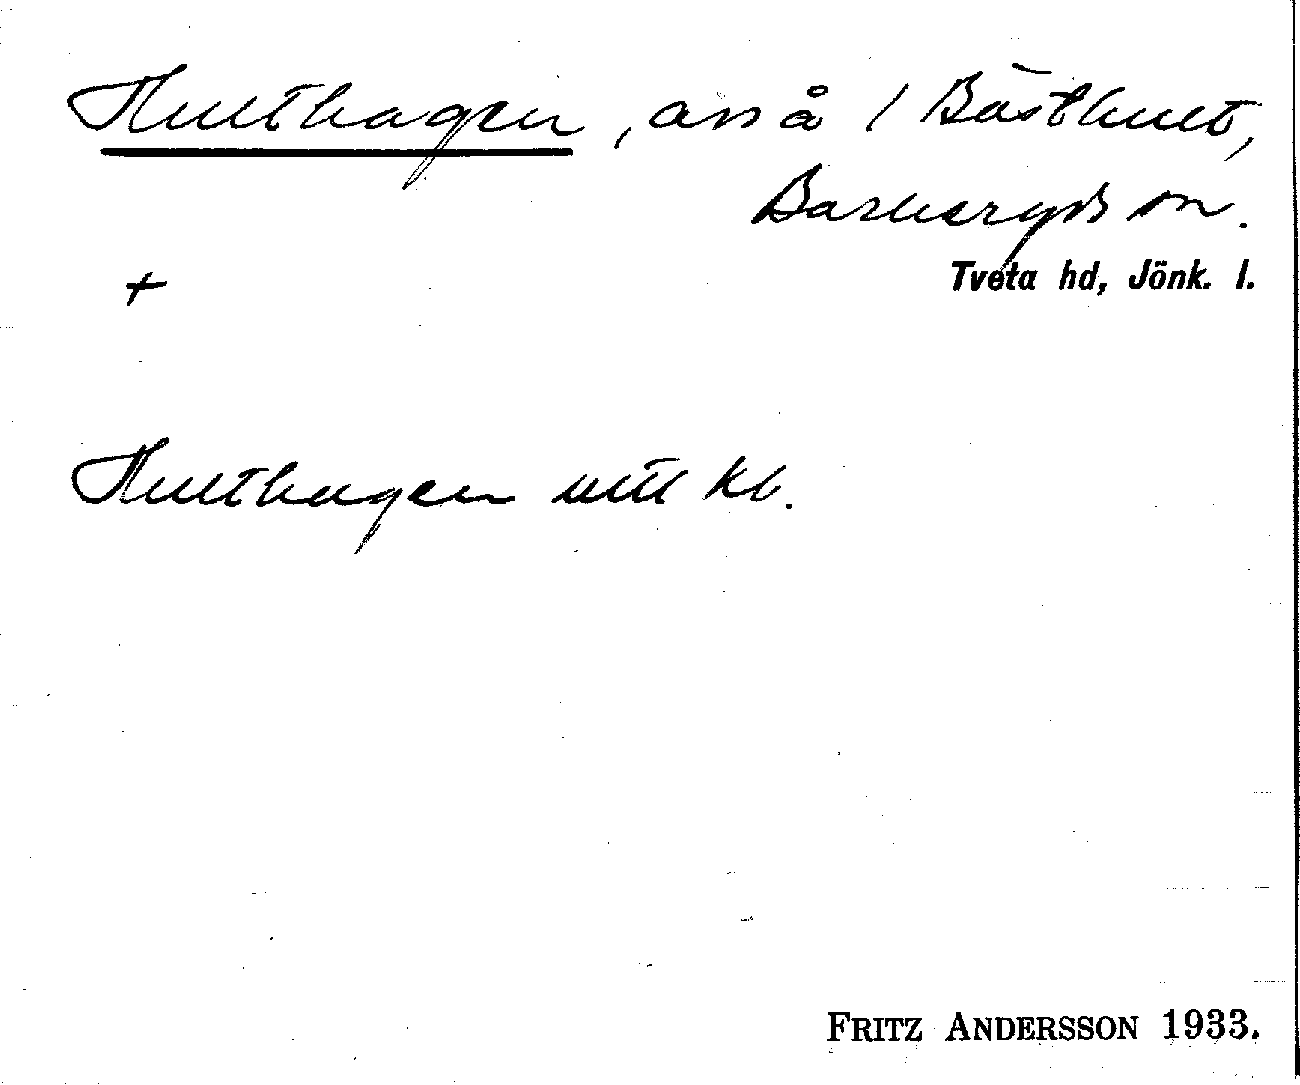 Hulthagen, avs å / Båsthult,
Barkeryds sn.
+ Tveta hd, Jönk. l.
Hulthagen utt kl.
FRITZ ANDERSSON 1933.